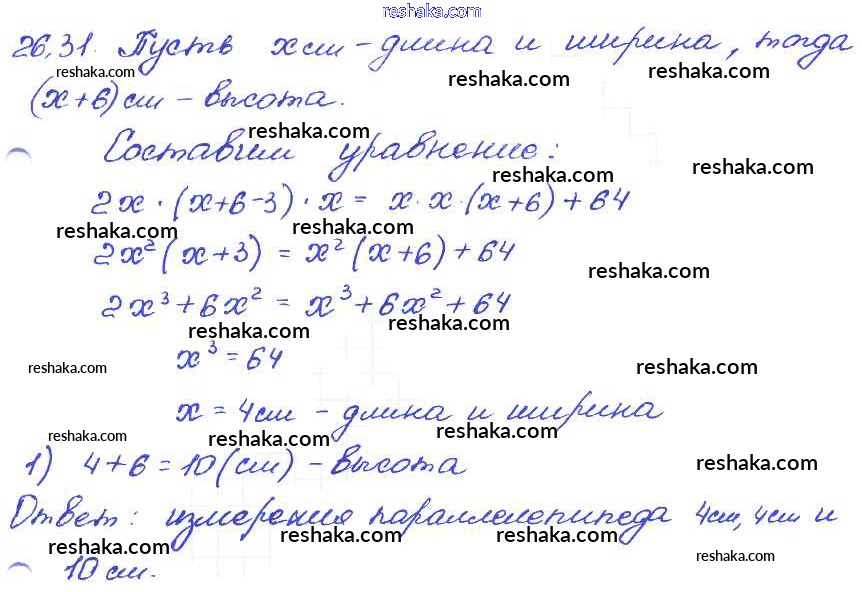 reshaka.com
26.31. Пусть x см - длина и ширина, тогда
reshaka.com reshaka.com reshaka.com
(x+6) см - высота.
reshaka.com
Составим уравнение:
reshaka.com reshaka.com
2x · (x+6-3) · x = x · x · (x+6) + 64
reshaka.com reshaka.com
2x²(x+3) = x²(x+6) + 64
reshaka.com
2x³ + 6x² = x³ + 6x² + 64
reshaka.com reshaka.com
x³ = 64
reshaka.com reshaka.com
x = 4см - длина и ширина
reshaka.com reshaka.com reshaka.com
1) 4+6=10(см) - высота
reshaka.com
Ответ: измерения параллелепипеда 4см, 4см и
reshaka.com reshaka.com reshaka.com
10 см.